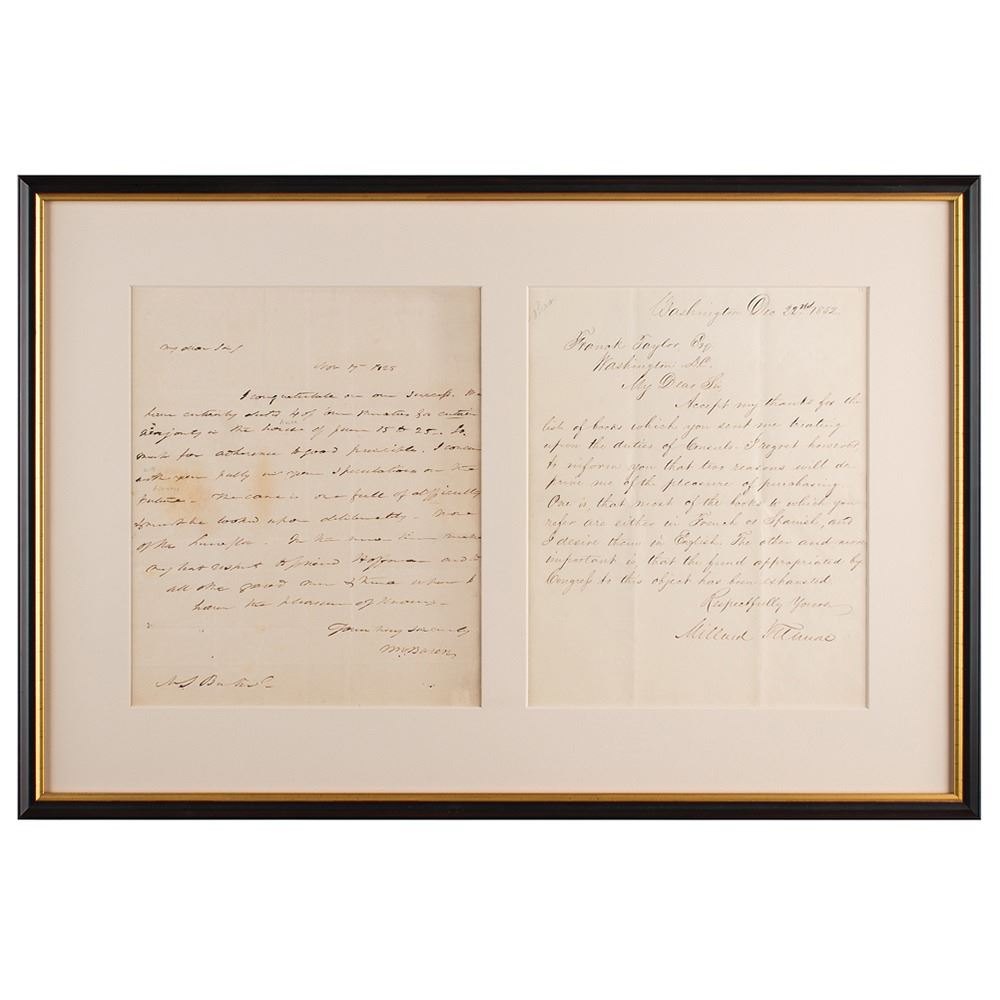 My dear Sir,
Nov 17 1825
I congratulate on our success. We
have certainly elected 4 of our Senators & a certain
majority in the house of from 15 to 25. So
much for adherence to good principle. I concur
with you fully in your speculations on the
future. The case is one full of difficulty
& must be looked upon deliberately. More
of this hereafter. In the mean time make
my best respect to friend Hoffman and to
all the good men & true whom I
have the pleasure of knowing.
Yours very sincerely
Washington Dec 22nd 1852.
Franck Taylor Esq.
Washington D.C.
My Dear Sir
Accept my thanks for the
list of books which you sent me treating
upon the duties of Consuls. I regret however,
to inform you that two reasons will de
prive me of the pleasure of purchasing.
One is, that most of the books to which you
refer are either in French or Spanish, and
I desire them in English. The other and more
important is, that the fund appropriated by
Congress to this object has been exhausted
Respectfully Yours
Millard Fillmore